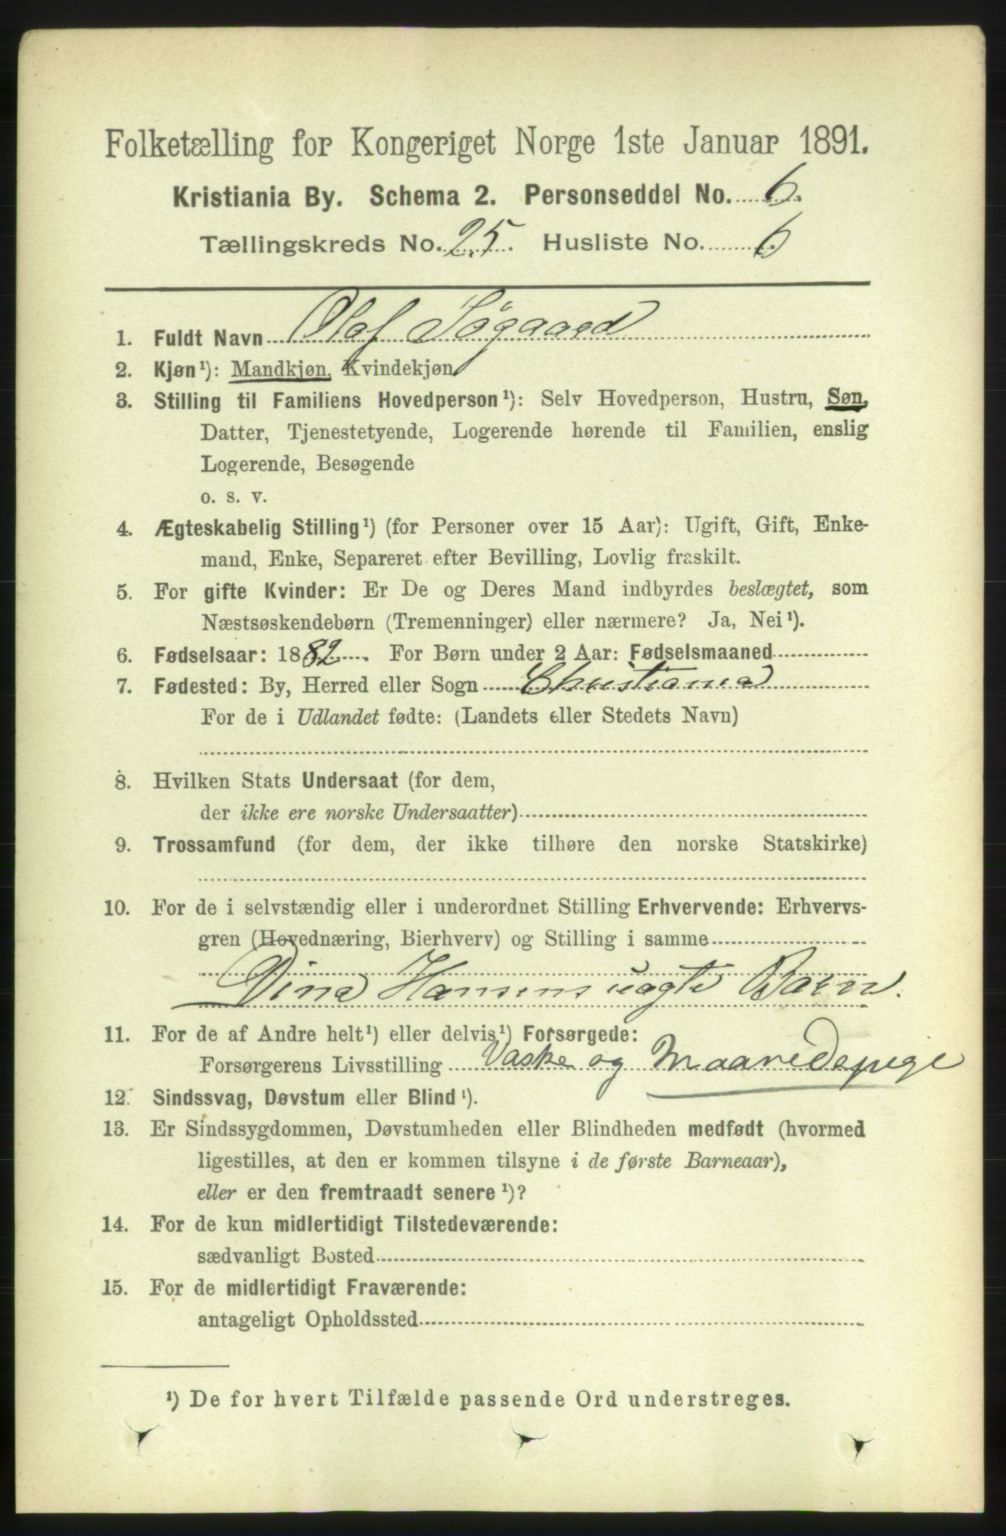 Folketælling for Kongeriget Norge 1ste Januar 1891.
Kristiania By. Schema 2. Personseddel No. 6.
Tællingskreds No. 25. Husliste No. 6
1. Fuldt Navn Olaf Søgaard
2. Kjøn¹): Mandkjøn, Kvindekjøn.
3. Stilling til Familiens Hovedperson¹): Selv Hovedperson, Hustru, Søn,
Datter, Tjenestetyende, Logerende hørende til Familien, enslig
Logerende, Besøgende
o. s. v.
4. Ægteskabelig Stilling¹) (for Personer over 15 Aar): Ugift, Gift, Enke-
mand, Enke, Separeret efter Bevilling, Lovlig fraskilt.
5. For gifte Kvinder: Er De og Deres Mand indbyrdes beslægtet, som
Næstsøskendebørn (Tremenninger) eller nærmere? Ja, Nei¹).
6. Fødselsaar: 1882. For Børn under 2 Aar: Fødselsmaaned
7. Fødested: By, Herred eller Sogn Christiania
For de i Udlandet fødte: (Landets eller Stedets Navn)
8. Hvilken Stats Undersaat (for dem,
der ikke ere norske Undersaatter)
9. Trossamfund (for dem, der ikke tilhøre den norske Statskirke)
10. For de i selvstændig eller i underordnet Stilling Erhvervende: Erhvervs-
gren (Hovednæring, Bierhverv) og Stilling i samme
Dina Hansens uægte Barn.
11. For de af Andre helt¹) eller delvis¹) Forsørgede:
Forsørgerens Livsstilling Vaske og Maanedspige
12. Sindssvag, Døvstum eller Blind¹).
13. Er Sindssygdommen, Døvstumheden eller Blindheden medfødt (hvormed
ligestilles, at den er kommen tilsyne i de første Barneaar),
eller er den fremtraadt senere¹)?
14. For de kun midlertidigt Tilstedeværende:
sædvanligt Bosted
15. For de midlertidigt Fraværende:
antageligt Opholdssted
¹) De for hvert Tilfælde passende Ord understreges.